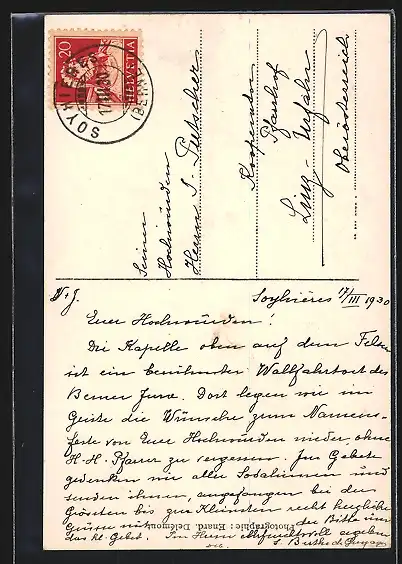 20
HELVETIA
SOYHIÈRES
(BERN)
17.III.30
Seiner
Hochwürden
Herrn S.
Kooperator
Pfarrhof
Linz - Urfahr
Oberösterreich
Soyhières 17/III 1930
Euer Hochwürden!
Die Kapelle oben auf dem Felsen
ist ein berühmter Wallfahrtsort des
Berner Jura. Dort legen wir im
Geiste die Wünsche zum Namens-
feste von Euer Hochwürden nieder, ohne
H. H. Pfarrer zu vergessen. Im Gebete
gedenken wir aller Sodalinnen und
senden ihnen, angefangen bei der
Grössten bis zur Kleinsten recht herzliche
Grüsse mit der Bitte um
das hl. Gebet. Im Herrn ehrfurchtsvoll ergeben
Photographie: Enard, Delémont